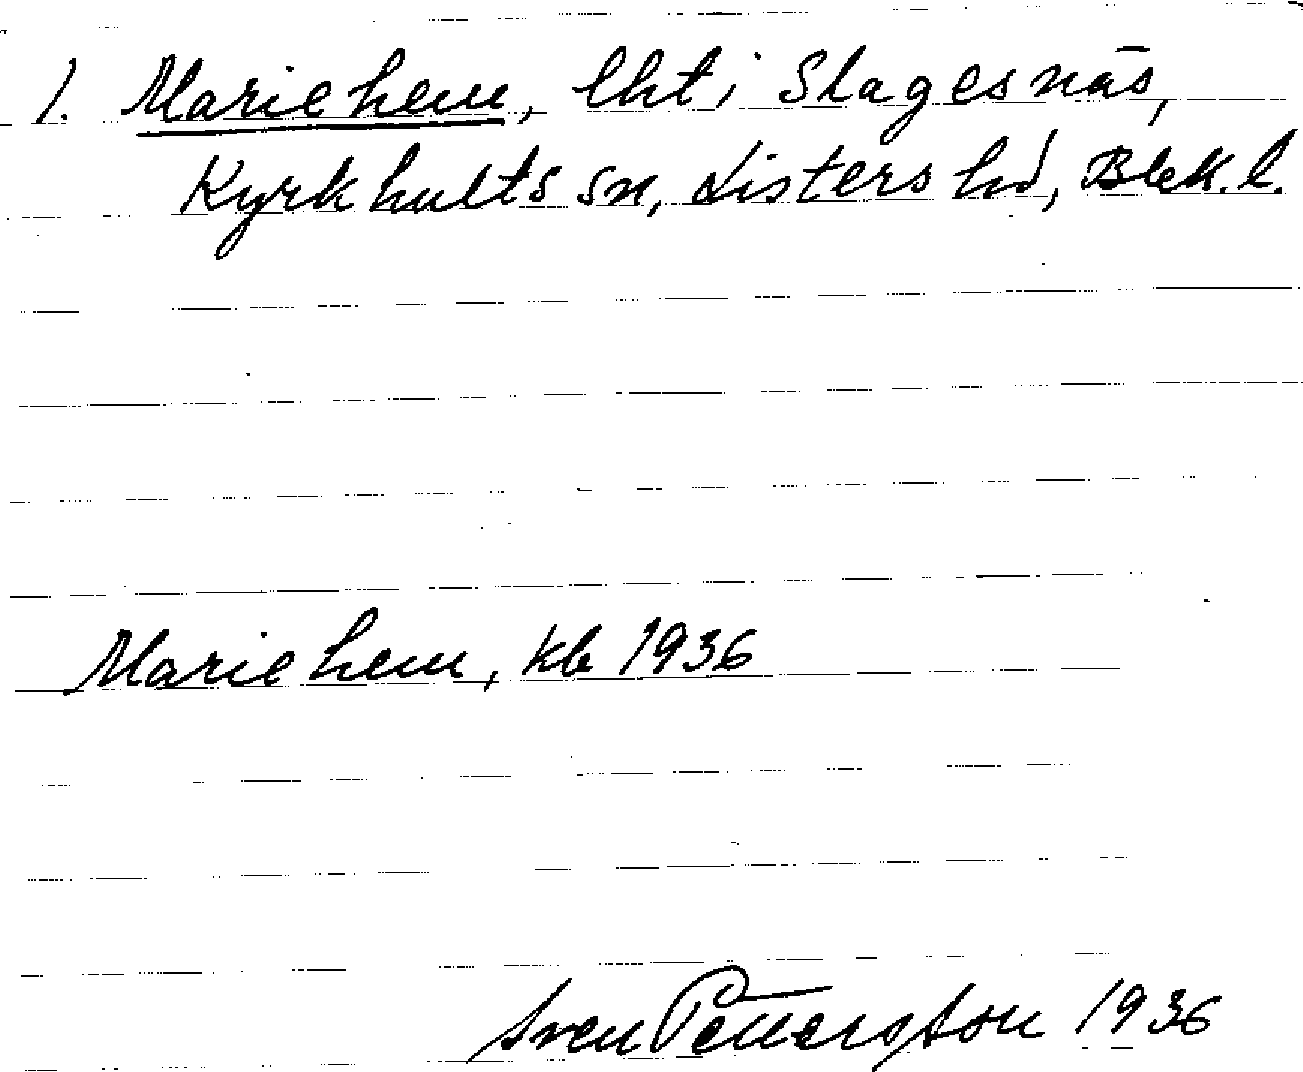 1. Mariehem, lht i Slagesnäs,
Kyrkhults sn, Listers hd, Blek. l.
Mariehem, kb 1936
Sven Pettersson 1936